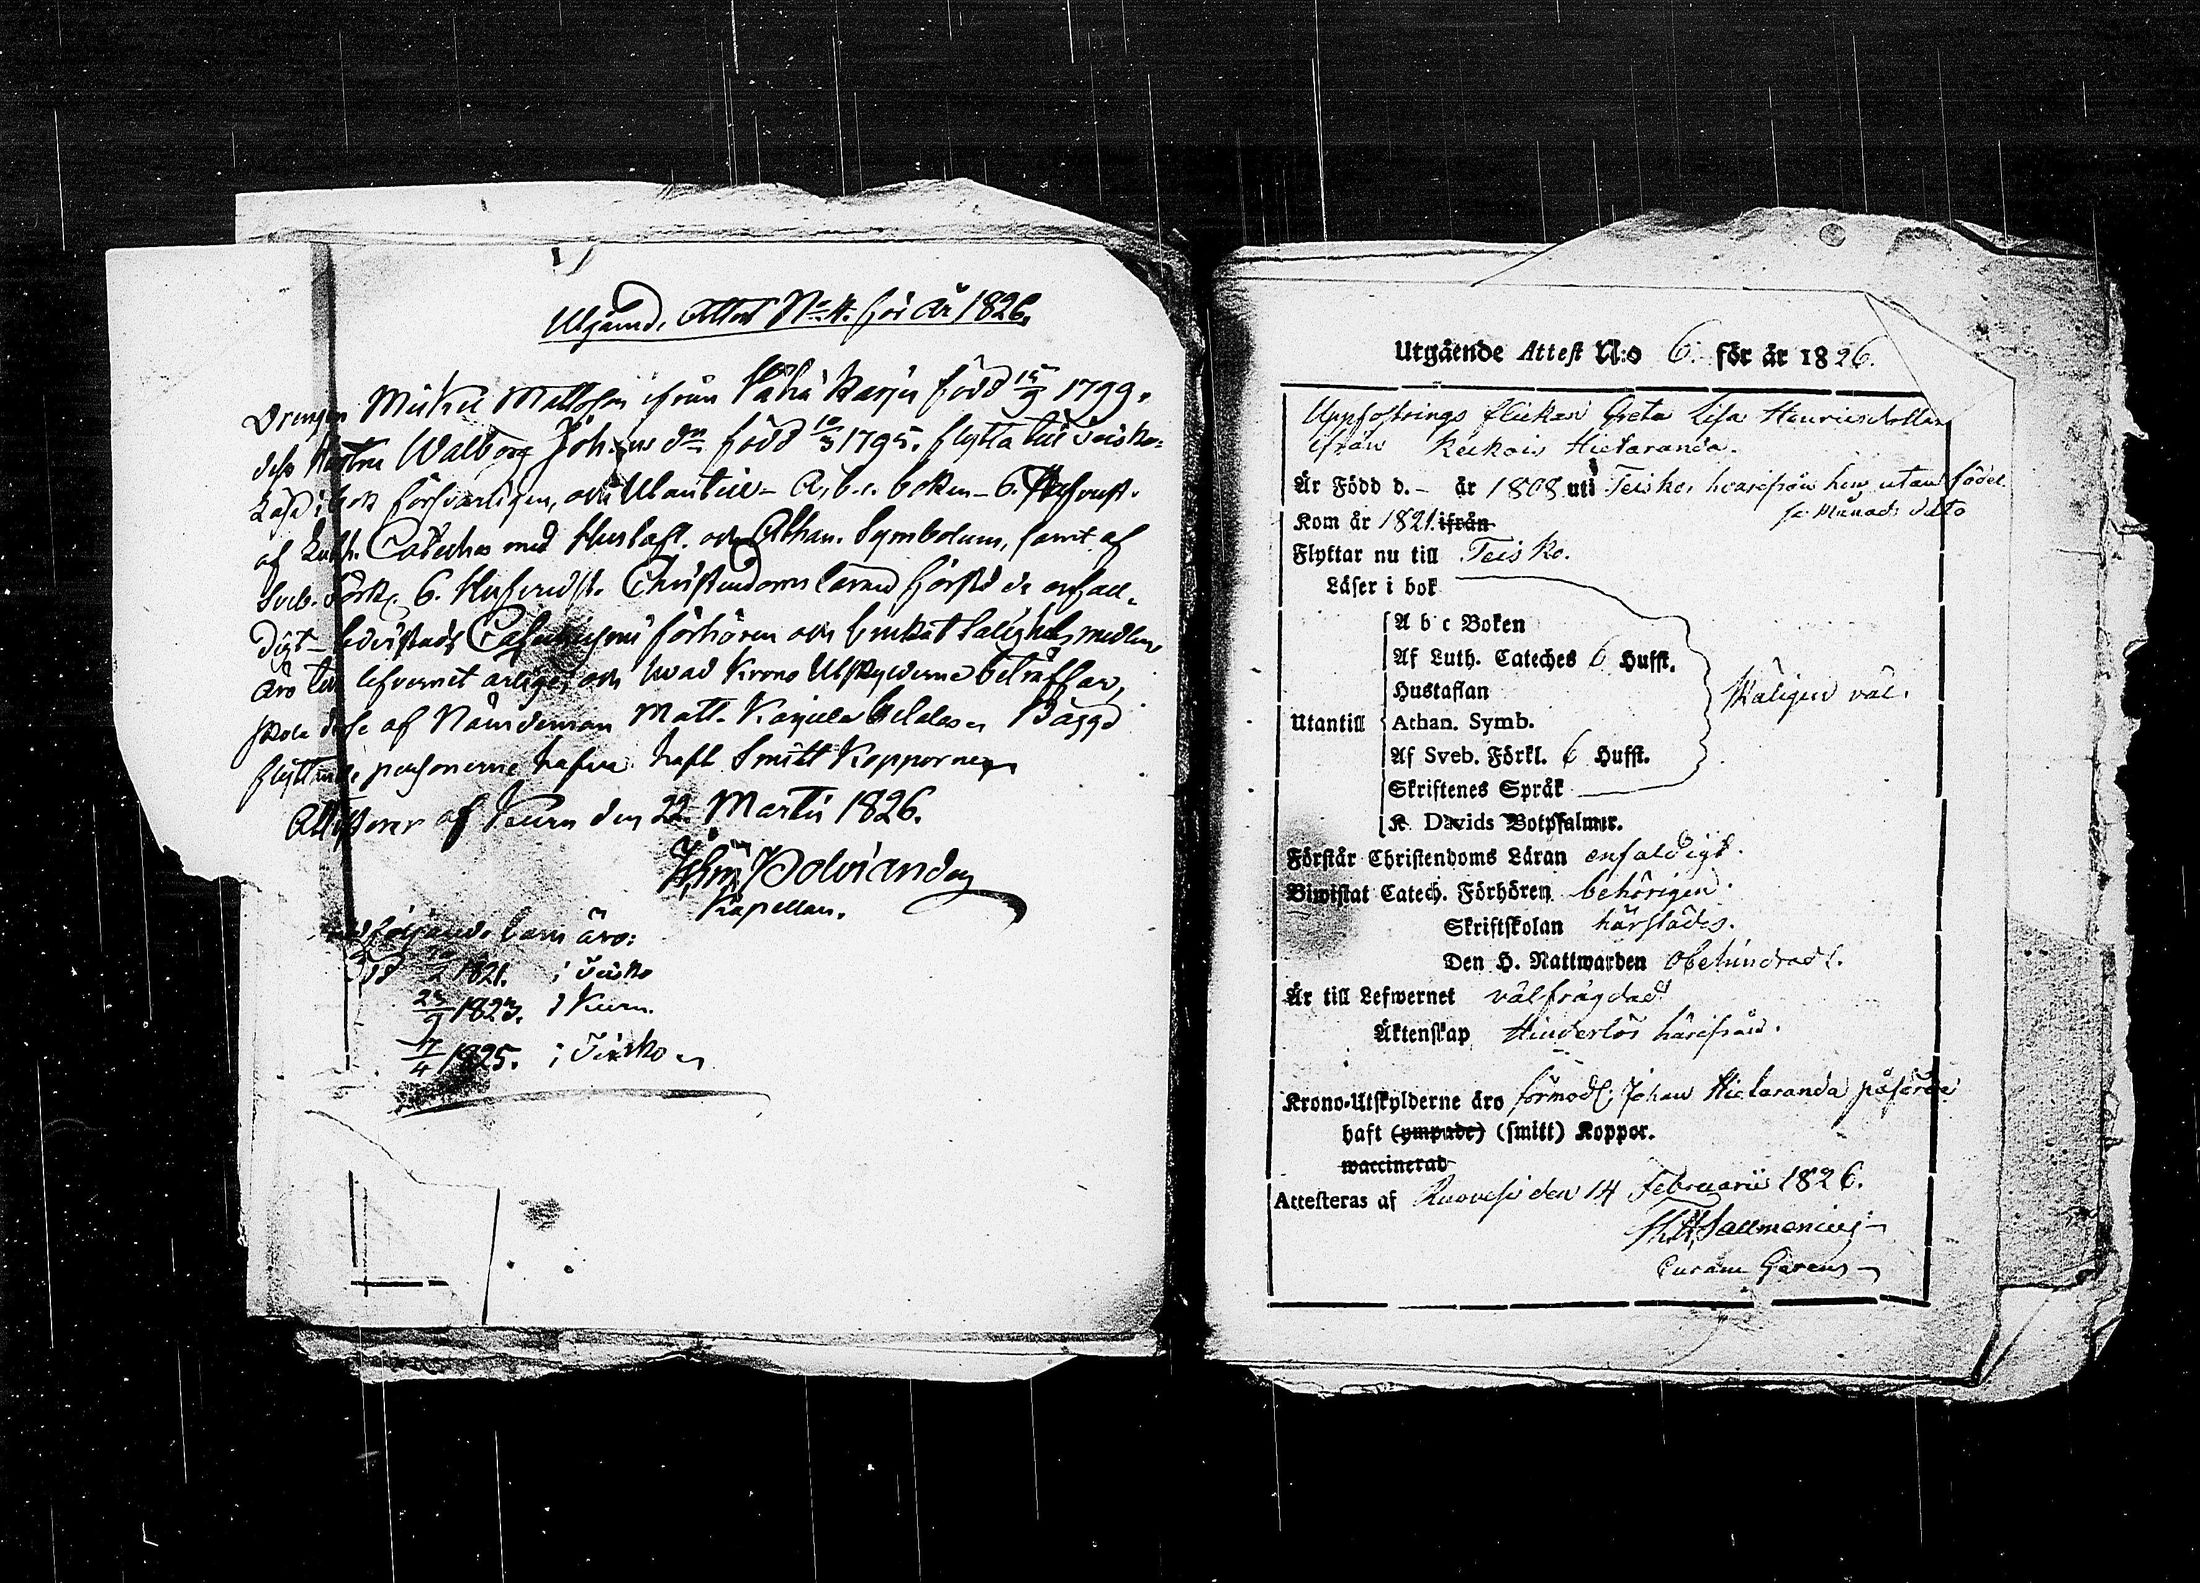 Utgående Attest No 4. för år 1826.
Drengen Mickel Mattsson ifrån Pähä Karju född 15/9 1799.
dess Hustru Walborg Johans dr född 10/3 1795. flytta till Teisko:
Läsa i bok försvarligen, och Utantill - A, b. c. boken - 6. Hufvust.
af Luth. Cateches med Hustafl. och Athan. Symbolum, samt af
Sveb. Förkl. 6. Hufvudst. Christendoms läran förstå de enfal-
digt - bevistadt Catechismi förhören och brukat Salighets medlen,
äro till lefvernet ärlige, och hvad Krono Utskylderne beträffar,
skola desse af Nämdeman Matt. Karjula betalas. Bägge
flyttande personerne hafva haft Smitt Kopporne
Attesterar af Kuru den 22. Martii 1826.
Joh: Polviander
Kapellan.
följande barn äro:
född 2 1821. i Teisko
23/9 1823. i Kuru.
17/4 1825. i Teisko
Utgående Attest N:o 6. för år 1826.
Uppfostrings flickan Greta Lisa Henricsdotter
ifrån Keckois Hietaranda.
Är Född d. - år 1808 uti Teisko, hvarifrån hon utan födel
se Månads dato
Kom år 1821. ifrån
Flyttar nu till Teisko.
Läser i bok
A b c Boken
Af Luth. Cateches 6 Hufst.
Hustaflan
Skäligen väl.
Utantill Athan. Symb.
Af Sveb. Förkl. 6 Hufst.
Skriftenes Språk
K. Davids Botpsalmer.
Förstår Christendoms Läran enfaldigt.
Biwistat Catech. Förhören behörigen.
Skriftskolan härstädes.
Den H. Nattwarden obehindradt.
Är till Lefwernet välfrägdad
Äktenskap Hinderlös härifrån.
Krono-Utskylderne äro förmodl. Johan Hietaranda påförde
haft (ympade) (smitt) Koppor.
waccinerad
Attesteras af Ruovesi den 14 Februarii 1826.
Sallmenius
Curam Gerens